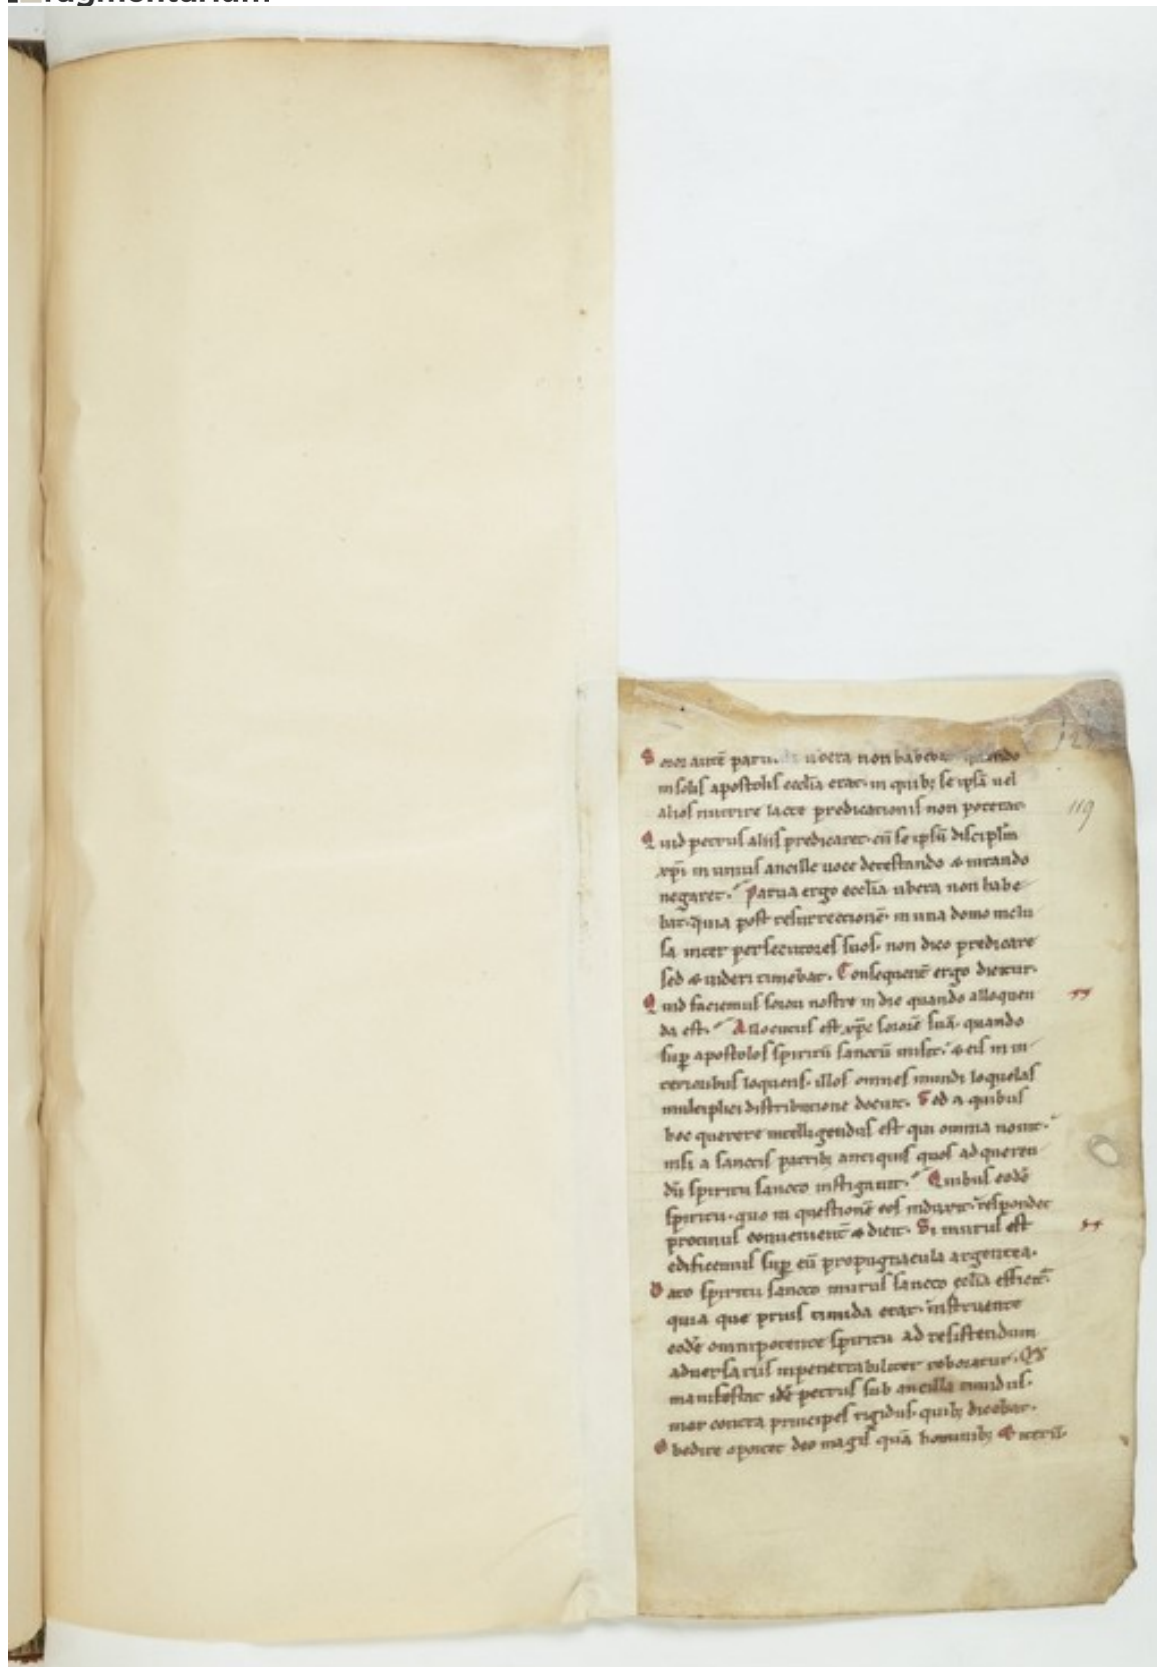 fragmentarium
Soror autē parua ubera non habebat quando
in solis apostolis eccl̄ia erat· in quibȝ se ipsā uel
alios nutrire lacte predicationis non poterat·
12
119
Quid petrus aliis predicaret· cū se ipsū discipl̄m
xp̄i in unius ancille uoce detestando & iurando
negaret· Parua ergo eccl̄ia ubera non habe
bat· quia post resurrectionē in una domo inclu
sa inter persecutores suos· non dico predicare
sed & uideri timebat· Consequent̄ ergo dicitur·
Quid faciemus sorori nostre in die quando alloquen
da est· Allocutus est xp̄c sororē suā· quando
sup̄ apostolos spiritū sanctū misit· & eis in in
terioribus loquens· illos omnes mundi loquelas
multiplici distributione docuit· Sed a quibus
hoc querere intelligendus est qui omnia nouit·
nisi a sanctis patribȝ antiquis quos ad queren
dū spiritu sancto instigauit· Quibus eodē
spiritu· quo in questionē eos induxit· respondet
protinus conuenient̄ & dicit· Si murus est
edificemus sup̄ eū propugnacula argentea·
Dato spiritu sancto murus sancta eccl̄ia efficit̄·
quia que prius timida erat· instruente
eodē omnipotente spiritu ad resistendum
aduersariis inpenetrabiliter roboratur· Qd̄
manifestat idē petrus sub ancilla timidus·
mox contra principes rigidus· quibȝ dicebat·
Obedire oportet deo magis quā hominibȝ & iterū·